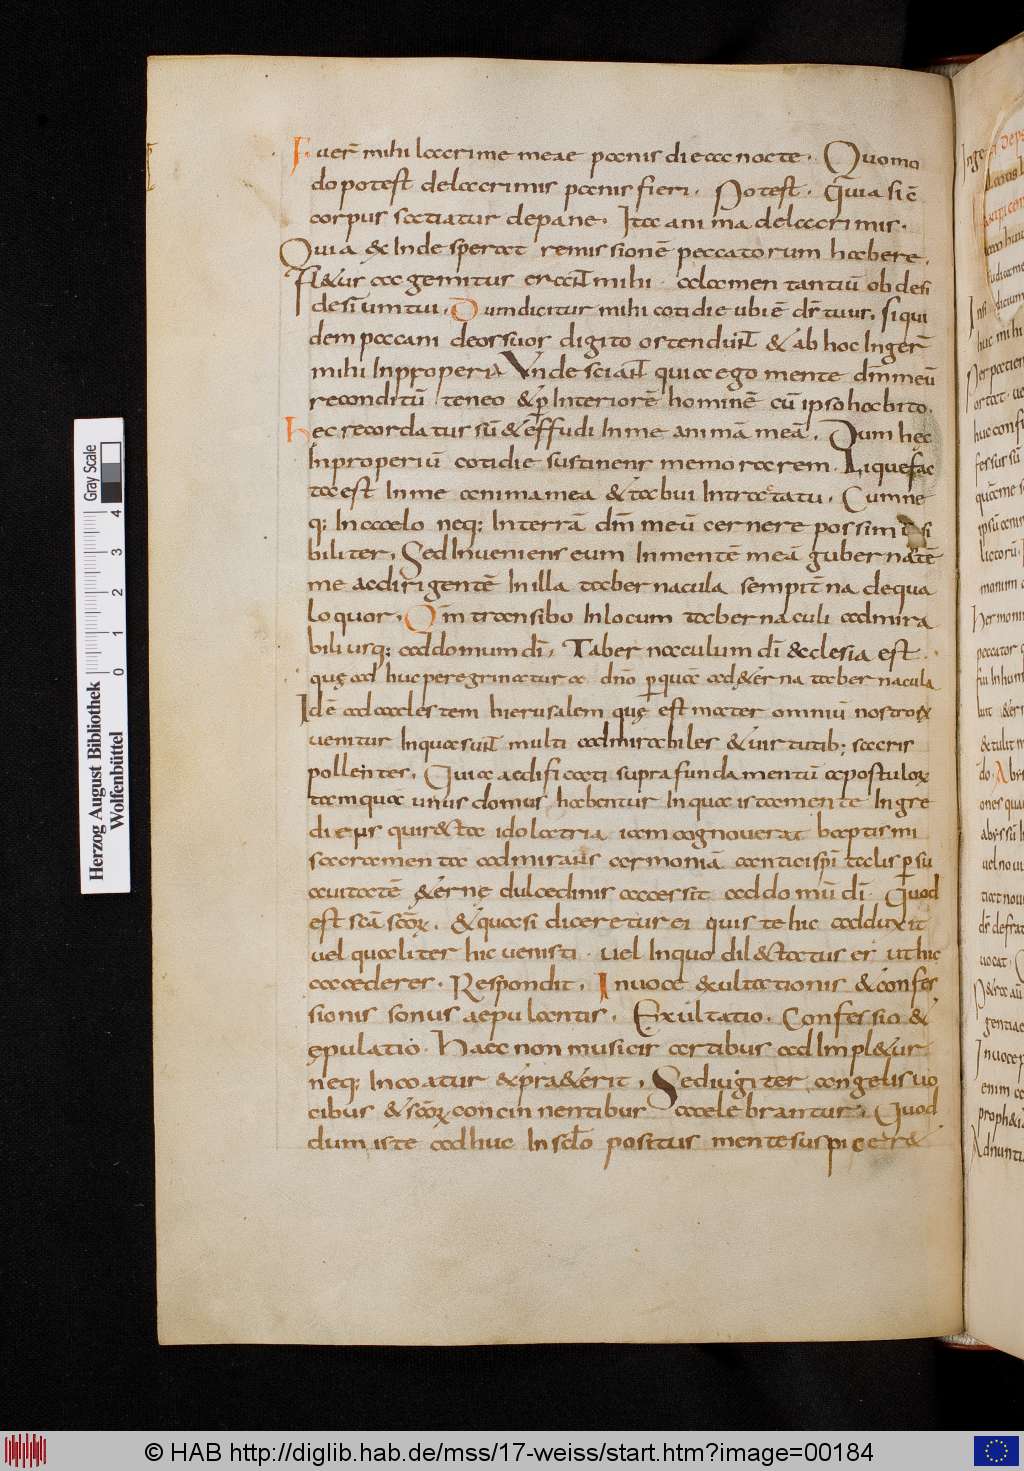 Fuer̄ mihi lacrime meae panis die ac nocte. Quomo
do potest de lacrimis panis fieri. Potest. Quia si ē
corpus satiatur de pane. Ita anima de lacrimis.
Quia & inde sperat remissionē peccatorum habere.
Fl&us ac gemitus erant mihi alamentantiū ob desi
desiū tui. Dum dicitur mihi cotidie ubi ē d̄s tuus. si qui
dem paccani deos suos digito ostendunt & ab hoc inger̄
mihi inproperia Unde sciant quia ego mente dm̄ meū
reconditū teneo & ꝑ interiorē hominē cū ipso habito.
Hęc recordatus sū & effudi in me animā meā. Dum hęc
inproperiū cotidie sustinens memorarem. Liquefac
ta est in me anima mea & tabui intra tatu. Cum ne
q; in caelo neq; in terrā dm̄ meū cernere possim ui si
biliter. Sed inveniens eum in mentē meā gubernatē
me ac dirigentē in illa tabernacula sempit̄na de qua
loquor. Qm̄ transibo in locum tabernaculi admira
bili usq; ad domum dī. Tabernaculum dī &clesia est
quę adhuc peregrinatur a dn̄o ꝑ quā ad &erna tabernacula
Idē ad caelestem hierusalem quę est mater omniū nostroꝝ
venitur in qua sunt multi admirabiles & uirtutib; sacris
pollentes. Qui aedificati supra fundamentū apostuloꝝ
tamquā unus domus habentur in qua ista mente ingre
di eius quir&ta idolatria iam cognoverat baptismi
sacramenta admirans armoniā cantici sp̄i talis ꝑ su
avitatē &ernę dulcedinis accessit ad domū dī. Quod
est scā scōꝝ. & quasi diceretur ei quis te hic adduxit
uel qualiter hic uenisti. uel in quo dil&tatus es ut hic
accederes. Respondit. In uoce &ultationis & confes
sionis sonus aepulantis. Exultatio. Confessio &
ępulatio. Haec non musicis artibus adimpl&ur
neq; incoatur & pra&erit. Sed iugiter angelis uo
cibus & scōꝝ concinnentibus caelebrantur. Quod
dum iste adhuc in scl̄o positus mente suspicer&
Herzog August Bibliothek
Wolfenbüttel
Gray Scale
0 1 2 3 4
© HAB http://diglib.hab.de/mss/17-weiss/start.htm?image=00184